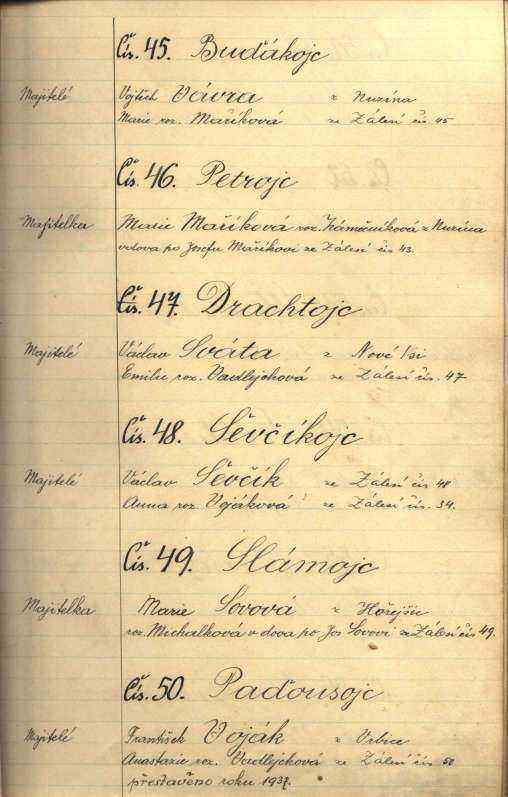 Čís. 45. Buďákojc
Majitelé Vojtěch Vávra z Nuzína
Marie roz. Maříková ze Zálesí čís 45
Čís. 46. Petrojc
Majitelka Marie Maříková roz. Zámečníková z Nuzína
vdova po Josefu Maříkovi ze Zálesí čís 43.
Čís. 47. Drachtojc
Majitelé Václav Sváta z Nové Vsi
Emilie roz. Vadlejchová ze Zálesí čís. 47
Čís. 48. Ševčíkojc
Majitelé Václav Ševčík ze Zálesí čís 48
Anna roz. Vojáková ze Zálesí čís. 34.
Čís. 49. Slámojc
Majitelka Marie Sovová z Hořejšic
roz. Michalková vdova po Jos Sovovi ze Zálesí čís 49.
Čís. 50. Paďousojc
Majitelé František Voják z Vrbice
Anastazie roz. Vadlejchová ze Zálesí čís 50
přestavěno roku 1937.